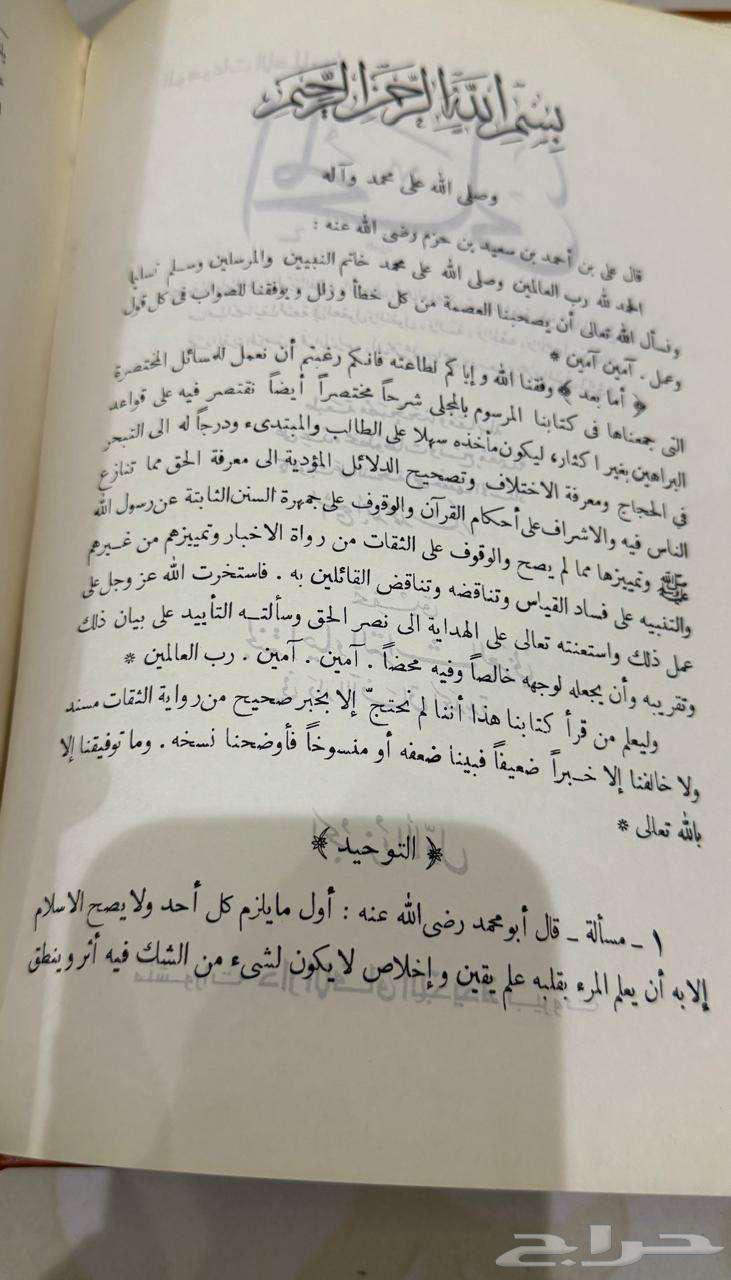 بسم الله الرحمن الرحيم
وصلى الله على محمد وآله
قال على بن أحمد بن سعيد بن حزم رضى الله عنه :
الحمد لله رب العالمين وصلى الله على محمد خاتم النبيين والمرسلين وسلم تسليما
ونسأل الله تعالى أن يصحبنا العصمة من كل خطأ وزلل ويوفقنا للصواب فى كل قول
وعمل . آمين آمين *
﴿ أما بعد ﴾ وفقنا الله وإياكم لطاعته فانكم رغبتم أن نعمل للمسائل المختصرة
التى جمعناها فى كتابنا المرسوم بالمجلى شرحاً مختصراً أيضاً نقتصر فيه على قواعد
البراهين بغير اكثار، ليكون مأخذه سهلا على الطالب والمبتدىء ودرجاً له الى التبحر
فى الحجاج ومعرفة الاختلاف وتصحيح الدلائل المؤدية الى معرفة الحق مما تنازع
الناس فيه والاشراف على أحكام القرآن والوقوف على جمهرة السنن الثابتة عن رسول الله
ﷺ وتمييزها مما لم يصح والوقوف على الثقات من رواة الاخبار وتمييزهم من غيرهم
والتنبيه على فساد القياس وتناقضه وتناقض القائلين به . فاستخرت الله عز وجل على
عمل ذلك واستعنته تعالى على الهداية الى نصر الحق وسألته التأييد على بيان ذلك
وتقريبه وأن يجعله لوجهه خالصاً وفيه محضاً . آمين . آمين . رب العالمين *
وليعلم من قرأ كتابنا هذا أننا لم نحتجّ إلا بخبر صحيح من رواية الثقات مسند
ولا خالفنا إلا خبراً ضعيفاً فبينا ضعفه أو منسوخاً فأوضحنا نسخه . وما توفيقنا إلا
بالله تعالى *
﴿ التوحيد ﴾
١ - مسألة - قال أبو محمد رضى الله عنه : أول ما يلزم كل أحد ولا يصح الاسلام
إلا به أن يعلم المرء بقلبه علم يقين وإخلاص لا يكون لشىء من الشك فيه أثر وينطق
حراج